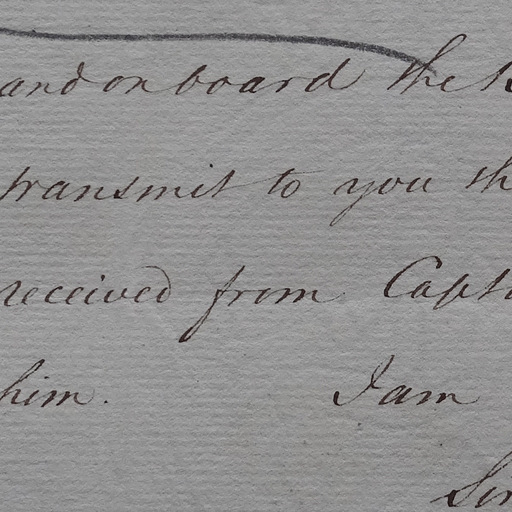 and on board the
transmit to you th
received from Capt
him. I am
Sir